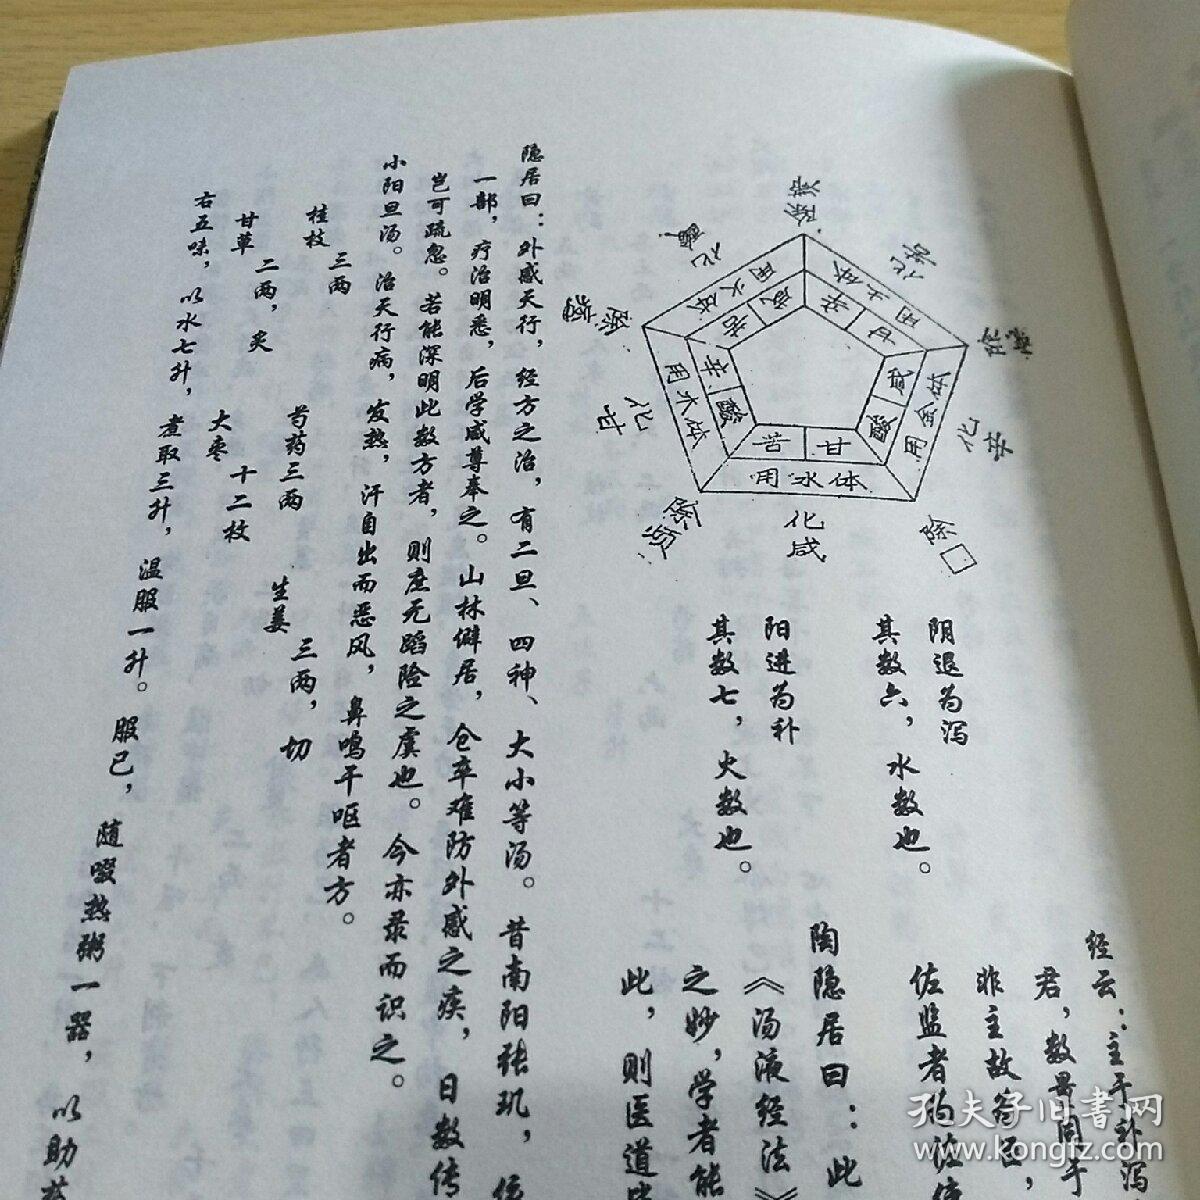 经云：主于补泻
君，数量同于
非主故名臣，
佐监者的佐使
陶隐居曰：此
《汤液经法》
之妙，学者能
此，则医道毕
阴退为泻
其数六，水数也。
阳进为补
其数七，火数也。
除痞
化酸
化苦
用火体
用土体
咸
苦
辛
甘
化甘
化辛
用木体
用金体
辛
酸
咸
酸
苦
甘
用水体
化咸
除烦
除□
隐居曰：外感天行，经方之治，有二旦、四神、大小等汤。昔南阳张玑，依
一部，疗治明悉，后学咸尊奉之。山林僻居，仓卒难防外感之疾，日数传
岂可疏忽。若能深明此数方者，则庶无蹈险之虞也。今亦录而识之。
小阳旦汤。治天行病，发热，汗自出而恶风，鼻鸣干呕者方。
桂枝三两 芍药三两 生姜三两，切
甘草二两，炙 大枣十二枚
右五味，以水七升，煮取三升，温服一升。服已，随啜热粥一器，以助药
孔夫子旧书网
www.kongfz.com